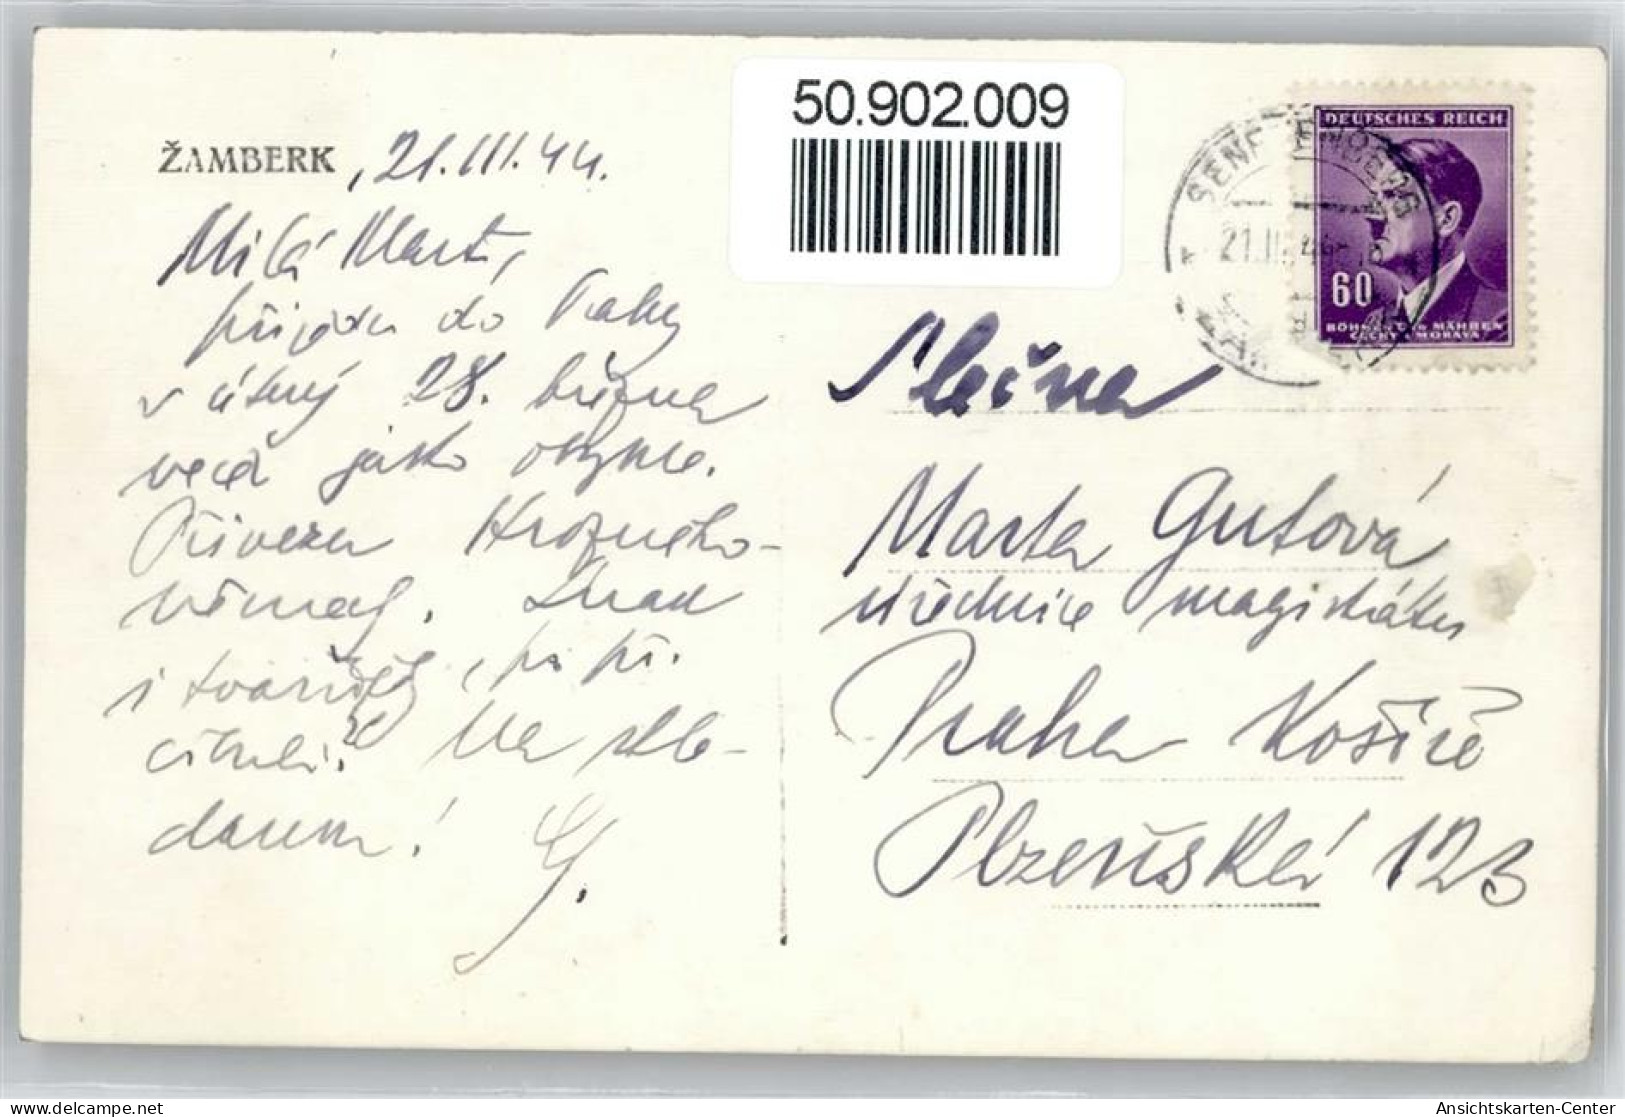 50.902.009
ŽAMBERK, 21.III.44.
Milá Marto,
přijedu do Prahy
v úterý 28. března
večer jako obykle.
Přivezu
Snad
i
Na shle-
danou!
G.
DEUTSCHES REICH
60
BÖHMEN UND MÄHREN
ČECHY A MORAVA
SENFTENBERG
21.III.44
Slečna
Marta Gutová
úřednice magistrátu
Praha Košíře
Plzeňská 123
Ansichtskarten-Center